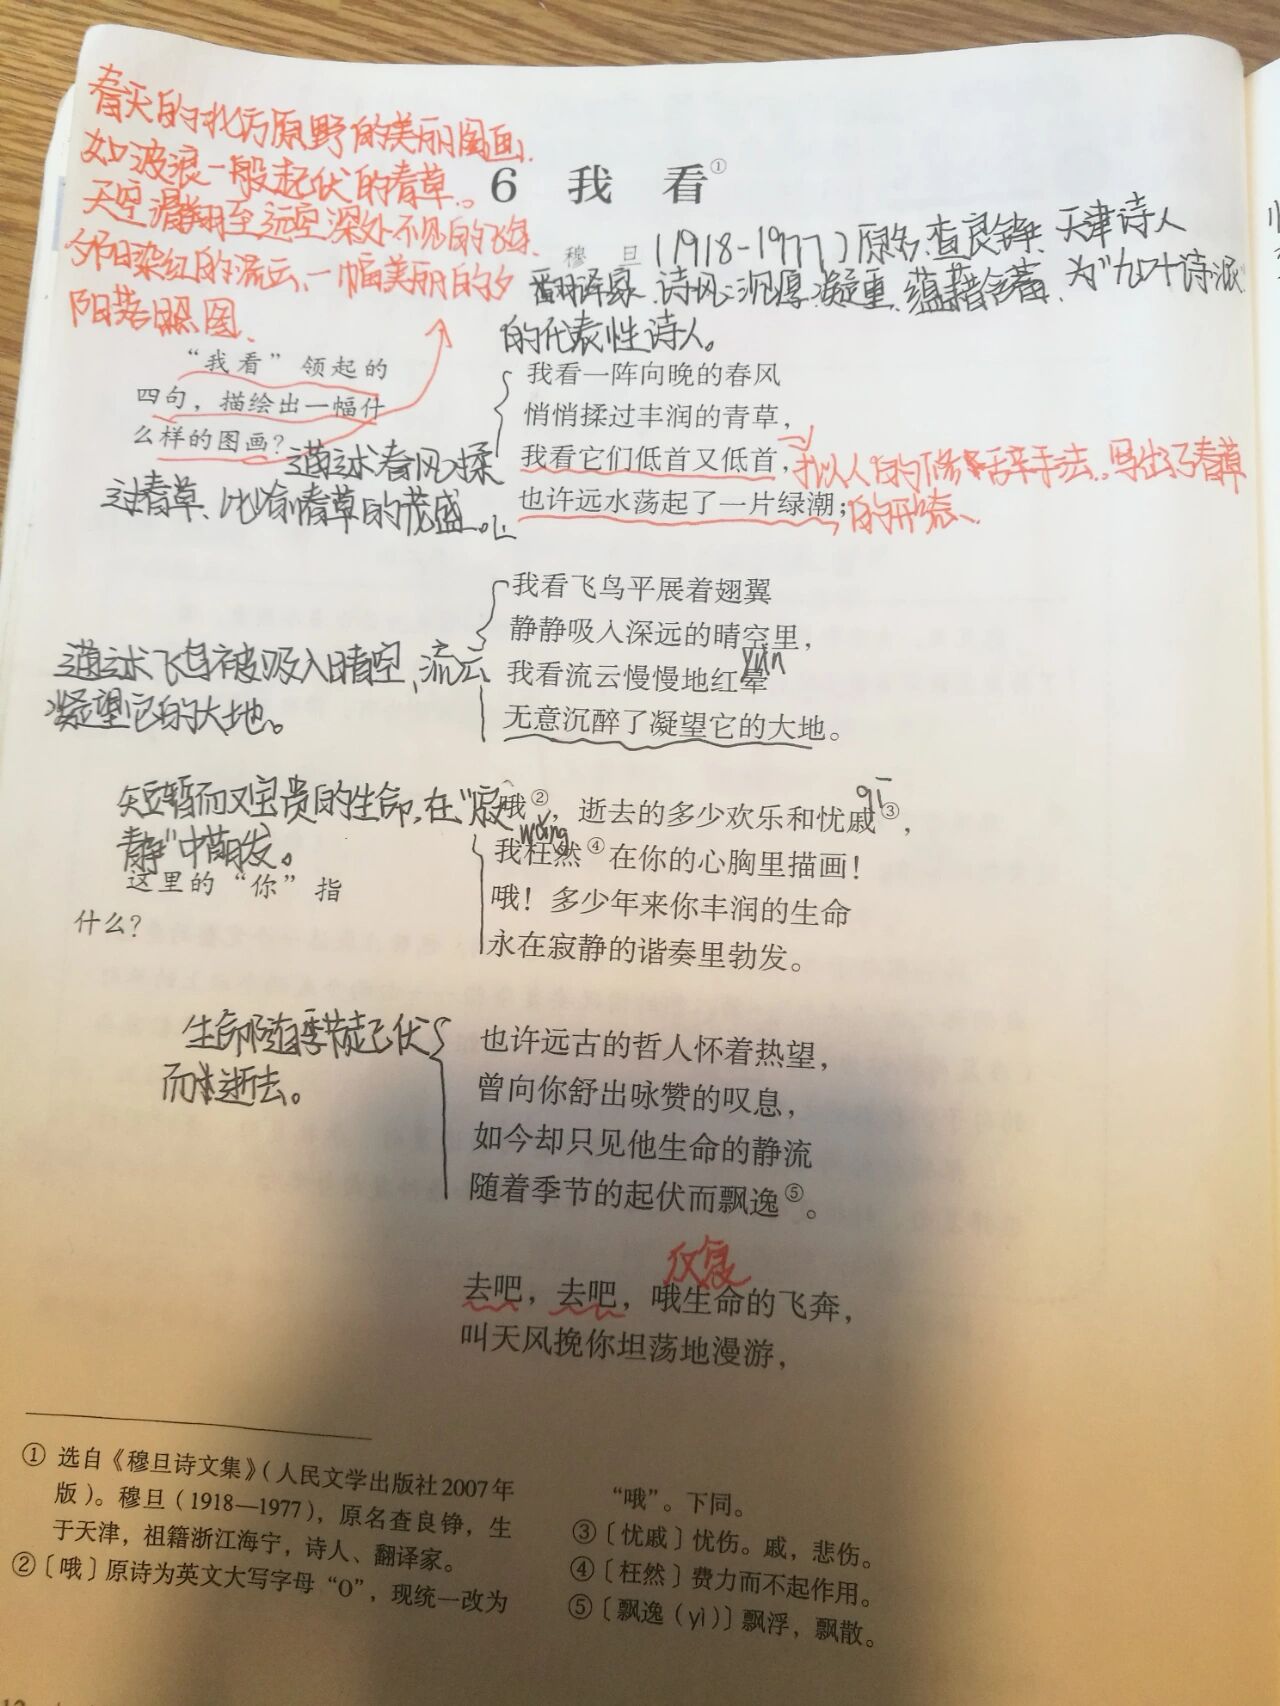 春天的北方原野的美丽图画、
如波浪一般起伏的青草、
天空滑翔至远空深处不见的飞鸟、
夕阳染红的流云、一幅美丽的夕
阳落照图、
6 我 看①
穆 旦 (1918-1977)原名查良铮、天津诗人
翻译家、诗风:沉厚凝重、蕴藉含蓄、为“九叶诗派”
的代表性诗人。
“我看”领起的
四句，描绘出一幅什
么样的图画?
通过求春风揉
过春草、比喻春草的茂盛。
我看一阵向晚的春风
悄悄揉过丰润的青草，
我看它们低首又低首，
也许远水荡起了一片绿潮；
拟人的修辞手法、写出了春草
的形态、
我看飞鸟平展着翅翼
静静吸入深远的晴空里，
我看流云慢慢地红晕
yùn
无意沉醉了凝望它的大地。
通过求飞鸟被吸入晴空、流云
凝望它的大地。
短暂而又宝贵的生命，在“寂
静”中萌发。
这里的“你”指
什么?
哦②，逝去的多少欢乐和忧戚③，
qī
wǎng
我枉然④在你的心胸里描画！
哦！多少年来你丰润的生命
永在寂静的谐奏里勃发。
生命随季节起伏
而逝去。
也许远古的哲人怀着热望，
曾向你舒出咏赞的叹息，
如今却只见他生命的静流
随着季节的起伏而飘逸⑤。
反复
去吧，去吧，哦生命的飞奔，
叫天风挽你坦荡地漫游，
① 选自《穆旦诗文集》(人民文学出版社2007年
版)。穆旦(1918—1977)，原名查良铮，生
于天津，祖籍浙江海宁，诗人、翻译家。
②〔哦〕原诗为英文大写字母“O”，现统一改为
“哦”。下同。
③〔忧戚〕忧伤。戚，悲伤。
④〔枉然〕费力而不起作用。
⑤〔飘逸(yì)〕飘浮，飘散。